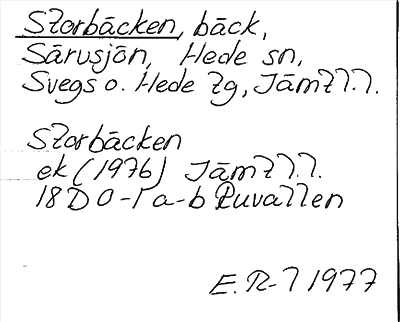 Storbäcken, bäck,
Särvsjön, Hede sn,
Svegs o. Hede tg, Jämtl.l.
Storbäcken
ek (1976) Jämtl.l.
18D 0-1 a-b Ruvallen
E.R-l 1977